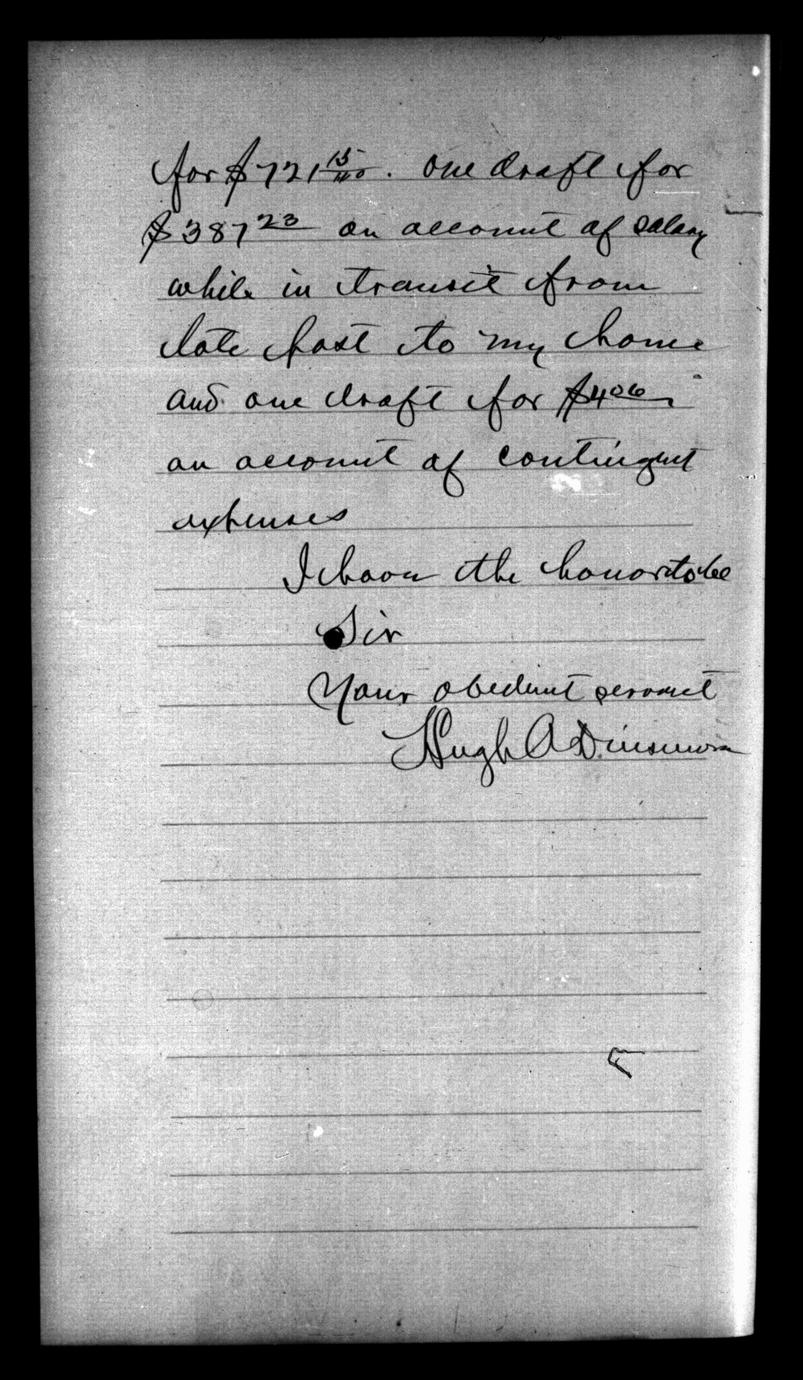 for $721 15/100. one draft for
$387 23 on account of salary
while in transit from
late post to my home
and one draft for $4 06
on account of contingent
expenses
I have the honor to be
Sir
Your obedient servant
Hugh A Dinsmore